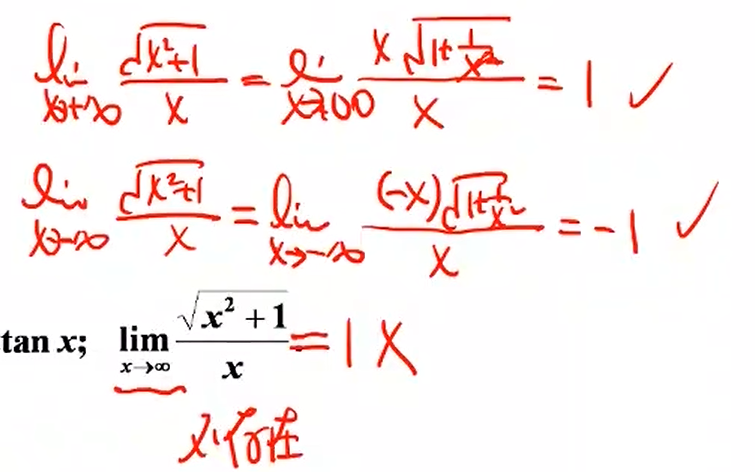 lim x→+∞ √(x²+1) / x = lim x→+∞ x√(1+1/x²) / x = 1 ✓
lim x→-∞ √(x²+1) / x = lim x→-∞ (-x)√(1+1/x²) / x = -1 ✓
tan x; lim x→∞ √(x²+1) / x = 1 ×
不存在